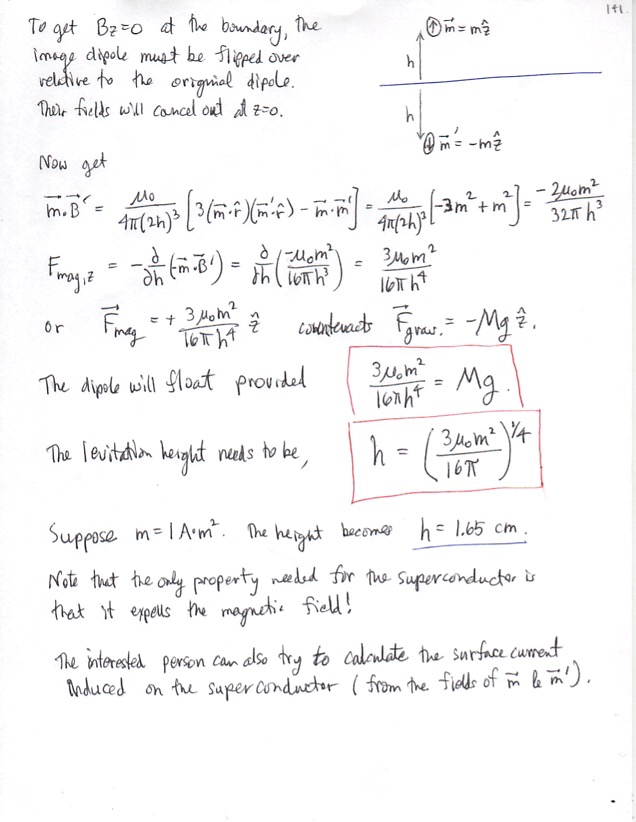 141.
To get Bz=0 at the boundary, the
image dipole must be flipped over
relative to the original dipole.
Their fields will cancel out at z=0.
h ↑ m⃗ = mẑ
h ↓ m⃗' = -mẑ
Now get
m⃗·B⃗' = μ₀/4π(2h)³ [3(m⃗·r̂)(m⃗'·r̂) - m⃗·m⃗'] = μ₀/4π(2h)³ [-3m²+m²] = -2μ₀m²/32πh³
F_mag,z = -∂/∂h (-m⃗·B⃗') = ∂/∂h (-μ₀m²/16πh³) = 3μ₀m²/16πh⁴
or F⃗_mag = + 3μ₀m²/16πh⁴ ẑ counteracts F⃗_grav. = -Mg ẑ.
The dipole will float provided 3μ₀m²/16πh⁴ = Mg.
The levitation height needs to be, h = (3μ₀m²/16π)^1/4
Suppose m = 1 A·m². The height becomes h = 1.65 cm.
Note that the only property needed for the superconductor is
that it expells the magnetic field!
The interested person can also try to calculate the surface current
induced on the superconductor (from the fields of m⃗ & m⃗').